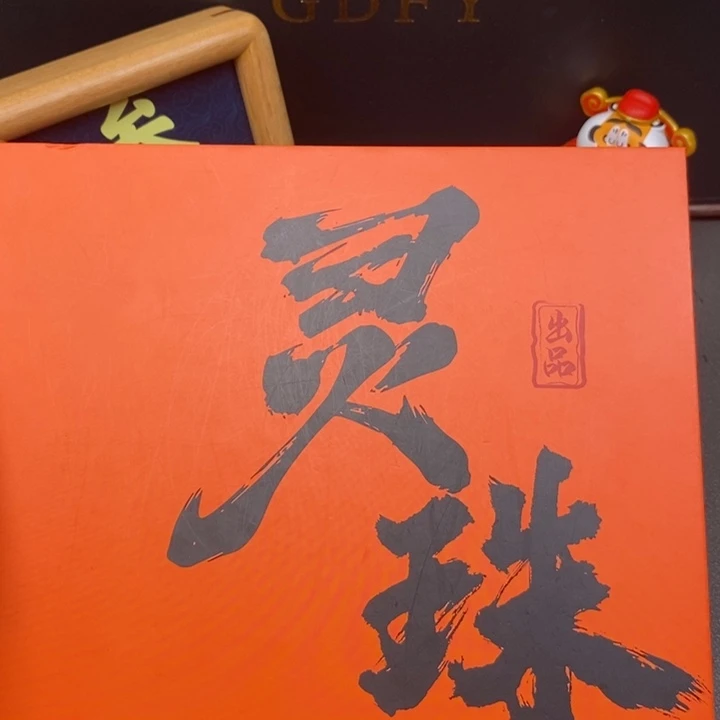 GDFY
灵珠
出品